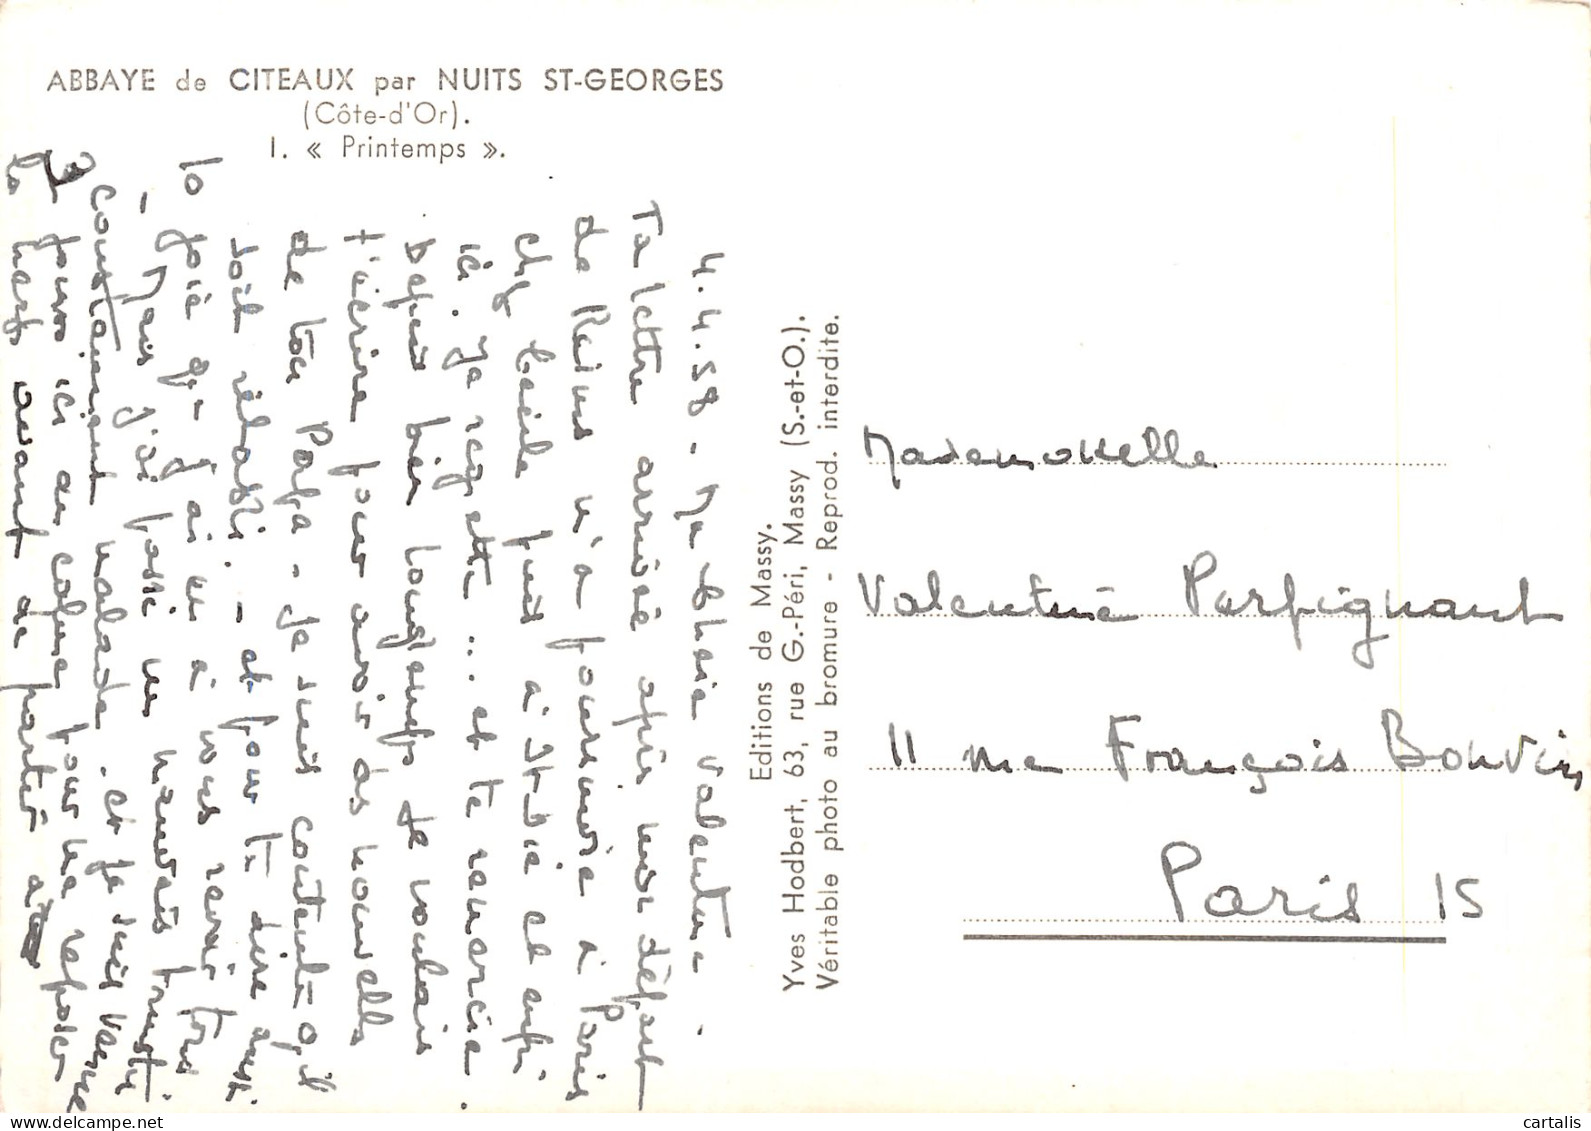 ABBAYE de CITEAUX par NUITS ST-GEORGES
(Côte-d'Or).
I. « Printemps ».
4.4.58 - Ma chère Valentine -
Ta lettre arrivée après mon départ
de Reims m'a poursuivie à Paris
chez Cécile puis à St Dié et enfin
ici. Je regrette ... et te remercie.
Depuis bien longtemps je voulais
t'écrire pour avoir des nouvelles
de ton Papa - Je suis contente qu'il
soit rétabli. - et pour te dire aussi
la joie que j'ai eu à vous revoir tous.
- Mais j'ai passé un mauvais trimestre
constamment malade. et je suis venue
jours ici au calme pour me reposer
avant de partir à
Editions de Massy.
Yves Hodbert, 63, rue G.-Péri, Massy (S.-et-O.).
Véritable photo au bromure - Reprod. interdite.
Mademoiselle
Valentine Parpignant
11 rue François Bonvin
Paris 15
cartalis